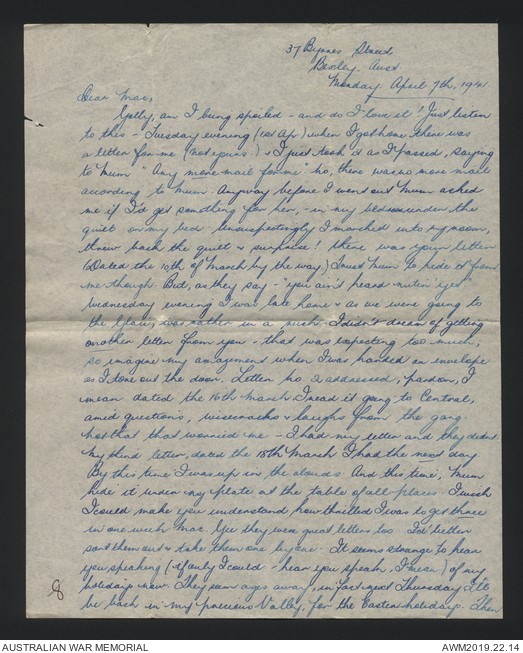 37 Byrnes Street
Bexley. Aust
Monday, April 7th, 1941
Dear Mac,
Golly, am I being spoiled - and do I love it! Just listen
to this - Tuesday evening (1st Apr) when I got home there was
a letter for me (not yours!) & I just took it as I passed, saying
to Mum "Any more mail for me" No, there was no more mail
according to Mum. Anyway before I went out Mum asked
me if I'd get something for her, - in my bedroom under the
quilt on my bed. Unsuspectingly I marched into my room,
threw back the quilt & surprise! there was your letter
(Dated the 10th of March by the way.) Mum to hide it from
me though. But, as they say - "you ain't heard nuttin' yet"
Wednesday evening I was late home & as we were going to
the , was rather in a rush. I didn't dream of getting
another letter from you - that was expecting too much;
so imagine my amazement when I was handed an envelope
as I tore out the door. Letter no. 2 addressed, pardon, I
mean dated the 16th March. I read it going to Central,
amid questions, wisecracks & laughs from the gang.
Not that that worried me - I had my letter and they didn't.
My third letter, dated the 18th March I had the next day
By this time I was up in the clouds. And this time, Mum
hid it under my plate at the table of all places. I wish
I could make you understand how thrilled I was to get three
in one week Mac. Yes they were great letters too. I'd better
sort them out & take them one by one. It seems strange to hear
you speaking (if only I could - hear you speak, I mean) of my
holidays now. They seem ages away, in fact next Thursday I'll
be back in my precious Valley, for the Easter holidays. Then
8
AUSTRALIAN WAR MEMORIAL
AWM2019.22.14